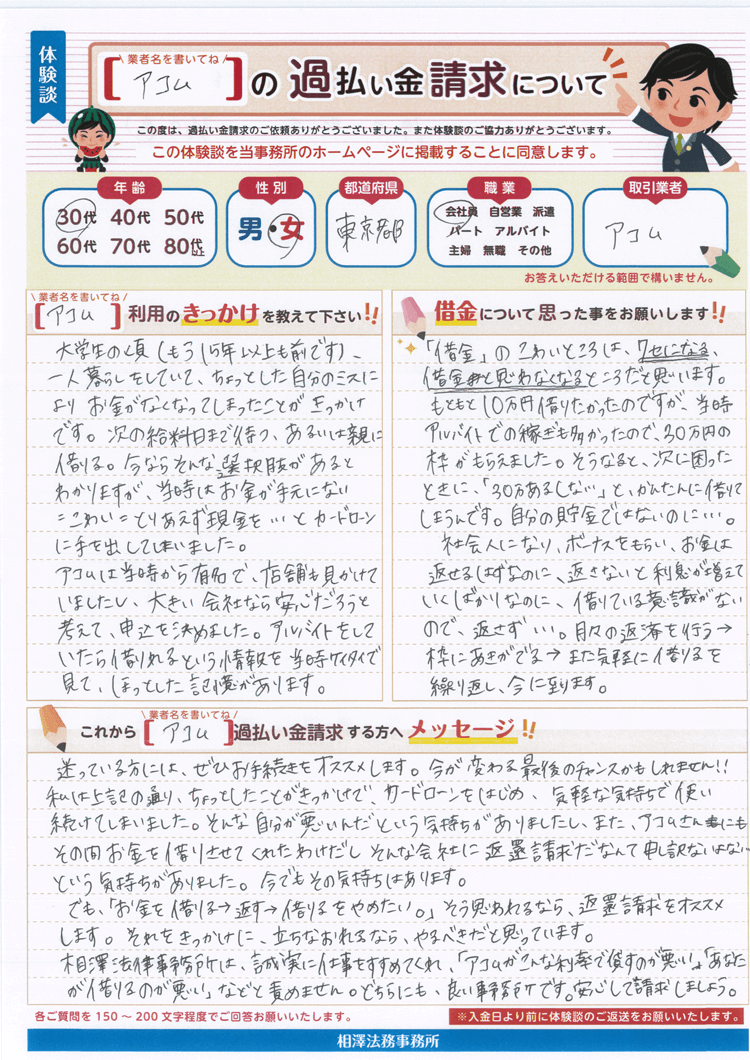 体験談
\ 業者名を書いてね /
[アコム]の過払い金請求について
この度は、過払い金請求のご依頼ありがとうございました。また体験談のご協力ありがとうございます。
この体験談を当事務所のホームページに掲載することに同意します。
年齢
30代 40代 50代
60代 70代 80代以上
性別
男・女
都道府県
東京都
職業
会社員 自営業 派遣
パート アルバイト
主婦 無職 その他
取引業者
アコム
お答えいただける範囲で構いません。
\ 業者名を書いてね /
[アコム]利用のきっかけを教えて下さい!!
大学生の頃(もう15年以上も前です)、
一人暮らしをしていて、ちょっとした自分のミスに
より お金がなくなってしまったことがきっかけ
です。次の給料日まで待つ、あるいは親に
借りる。今ならそんな選択肢があると
わかりますが、当時はお金が手元にない
=こわい=とりあえず現金を…とカードローン
に手を出してしまいました。
アコムは当時から有名で、店舗も見かけて
いましたし、大きい会社なら安心だろうと
考えて、申込を決めました。アルバイトをして
いたら借りれるという情報を当時ケイタイで
見て、ほっとした記憶があります。
借金について思った事をお願いします!!
「借金」のこわいところは、クセになる、
借金と思わなくなるところだと思います。
もともと10万円借りたかったのですが、当時
アルバイトでの稼ぎも多かったので、30万円の
枠がもらえました。そうなると、次に困った
ときに、「30万あるしな〜」と、かんたんに借りて
しまうんです。自分の貯金ではないのに…。
社会人になり、ボーナスをもらい、お金は
返せるはずなのに、返さないと利息が増えて
いくばかりなのに、借りている意識がない
ので、返さず…。月々の返済を行う→
枠にあきがでる→また気軽に借りるを
繰り返し、今に到ります。
これから
\ 業者名を書いてね /
[アコム]過払い金請求する方へメッセージ!!
迷っている方には、ぜひお手続きをオススメします。今が変わる最後のチャンスかもしれません!!
私は上記の通り、ちょっとしたことがきっかけで、カードローンをはじめ、気軽な気持ちで使い
続けてしまいました。そんな自分が悪いんだという気持ちがありましたし、また、アコムさんにも
その間お金を借りさせてくれたわけだし そんな会社に返還請求だなんて申し訳ないよな〜
という気持ちがありました。今でもその気持ちはあります。
でも、「お金を借りる→返す→借りるをやめたい。」そう思われるなら、返還請求をオススメ
します。それをきっかけに、立ちなおれるなら、やるべきだと思っています。
相澤法律事務所は、誠実に仕事をすすめてくれ、「アコムがこんな利率で貸すのが悪い」「あなた
が借りるのが悪い」などと責めません。どちらにも、良い事務所です。安心して請求しましょう。
各ご質問を150〜200文字程度でご回答お願いいたします。
※入金日より前に体験談のご返送をお願いいたします。
相澤法務事務所